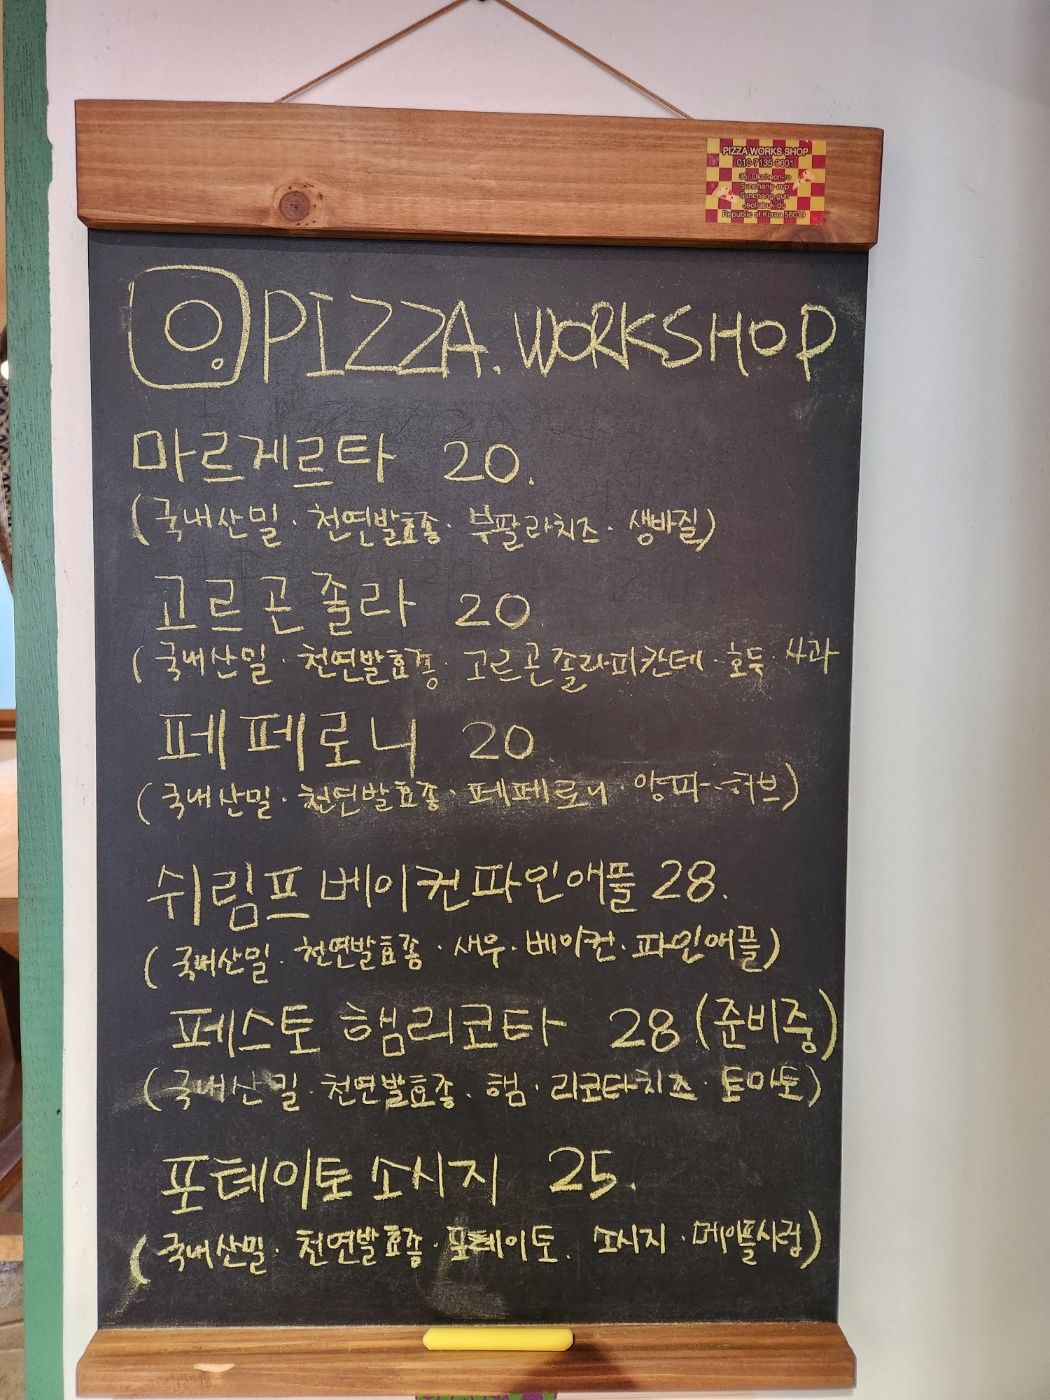 PIZZA WORKS SHOP
Republic of Korea 56039
PIZZA.WORKSHOP
마르게르타 20.
(국내산밀 · 천연발효종 · 부팔라치즈 · 생바질)
고르곤졸라 20
(국내산밀 · 천연발효종 · 고르곤졸라피칸테 · 호두 사과
페페로니 20
(국내산밀 · 천연발효종 · 페페로니 · 양파 · 허브)
쉬림프베이컨파인애플 28.
(국내산밀 · 천연발효종 · 새우 · 베이컨 · 파인애플)
페스토 햄리코타 28 (준비중)
(국내산밀 · 천연발효종 · 햄 · 리코타치즈 · 토마토)
포테이토소시지 25.
(국내산밀 · 천연발효종 · 포테이토 · 소시지 · 메이플시럽)